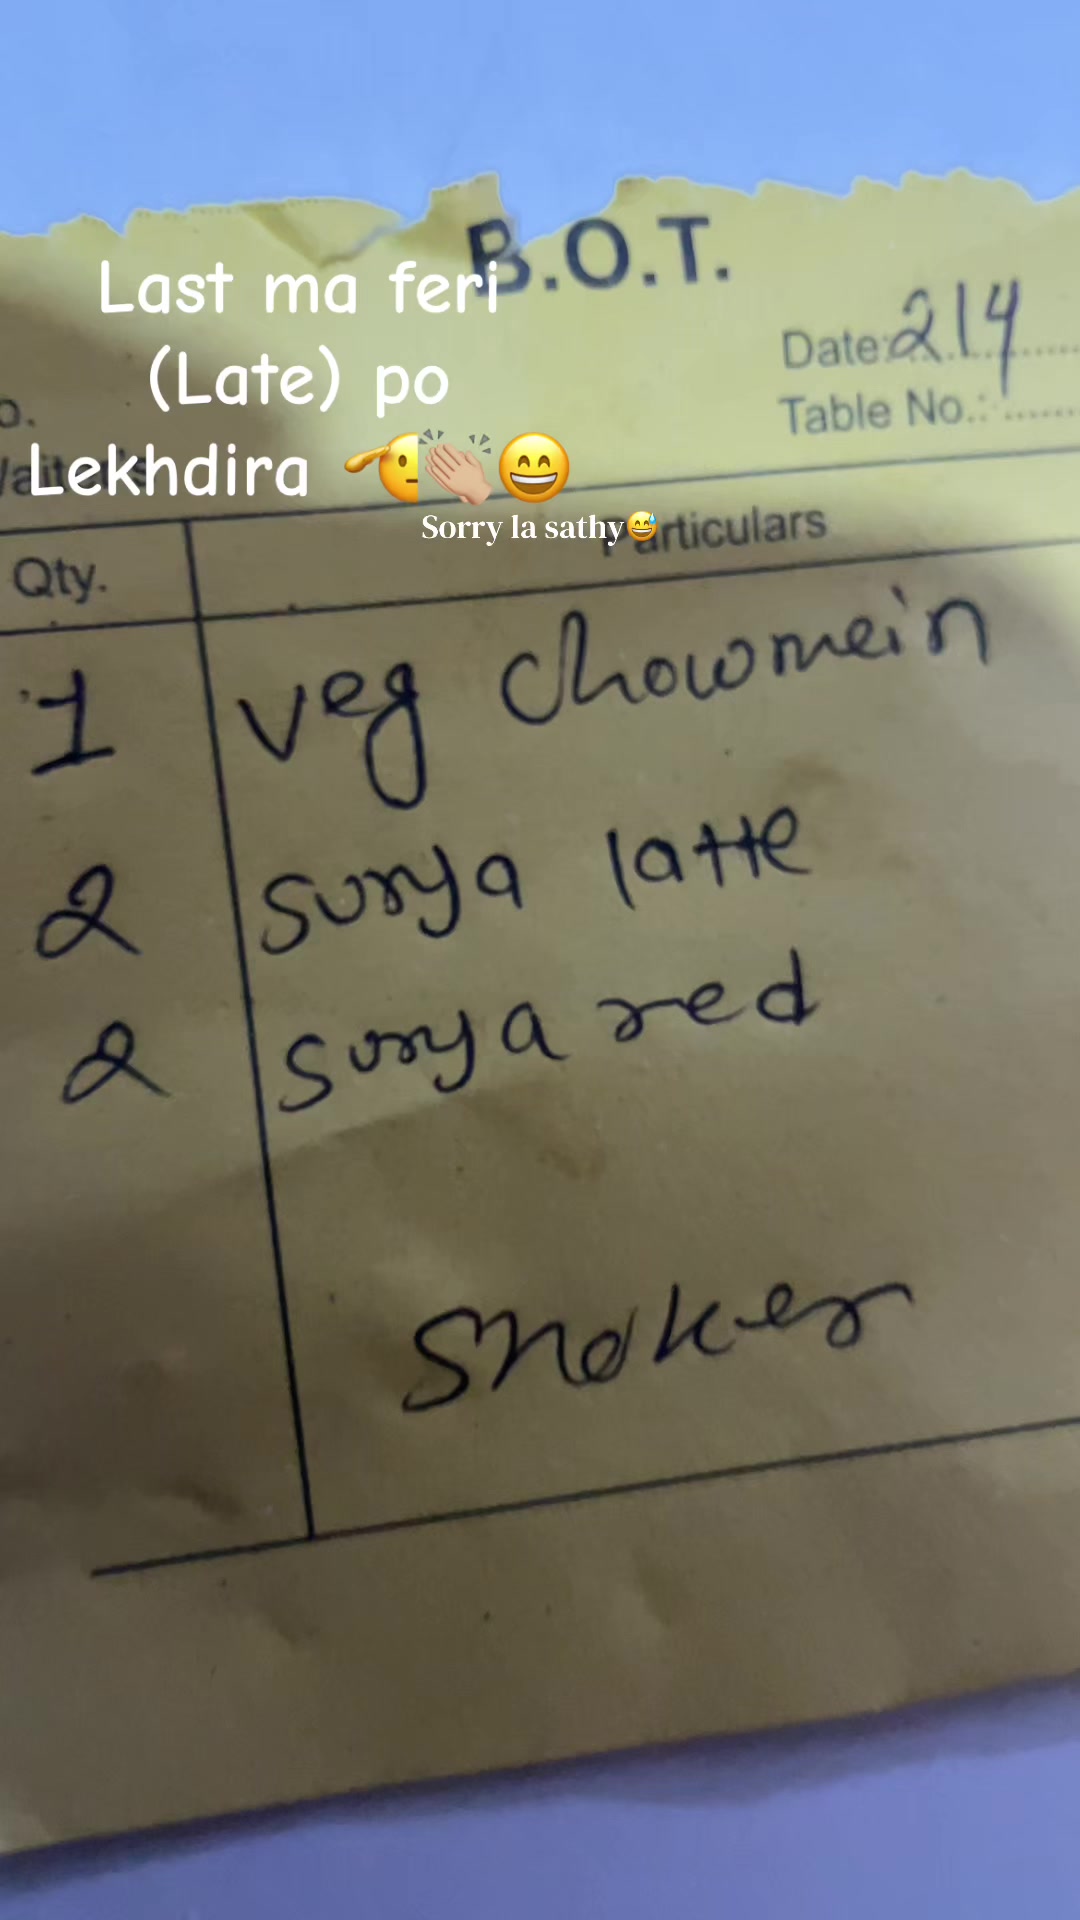 B.O.T.
Last ma feri
(Late) po
Lekhdira 🫡👏🏼😄
Sorry la sathy😅
Date: 214
Table No.:
Qty.
Particulars
1 veg chowmein
2 surya latte
2 surya red